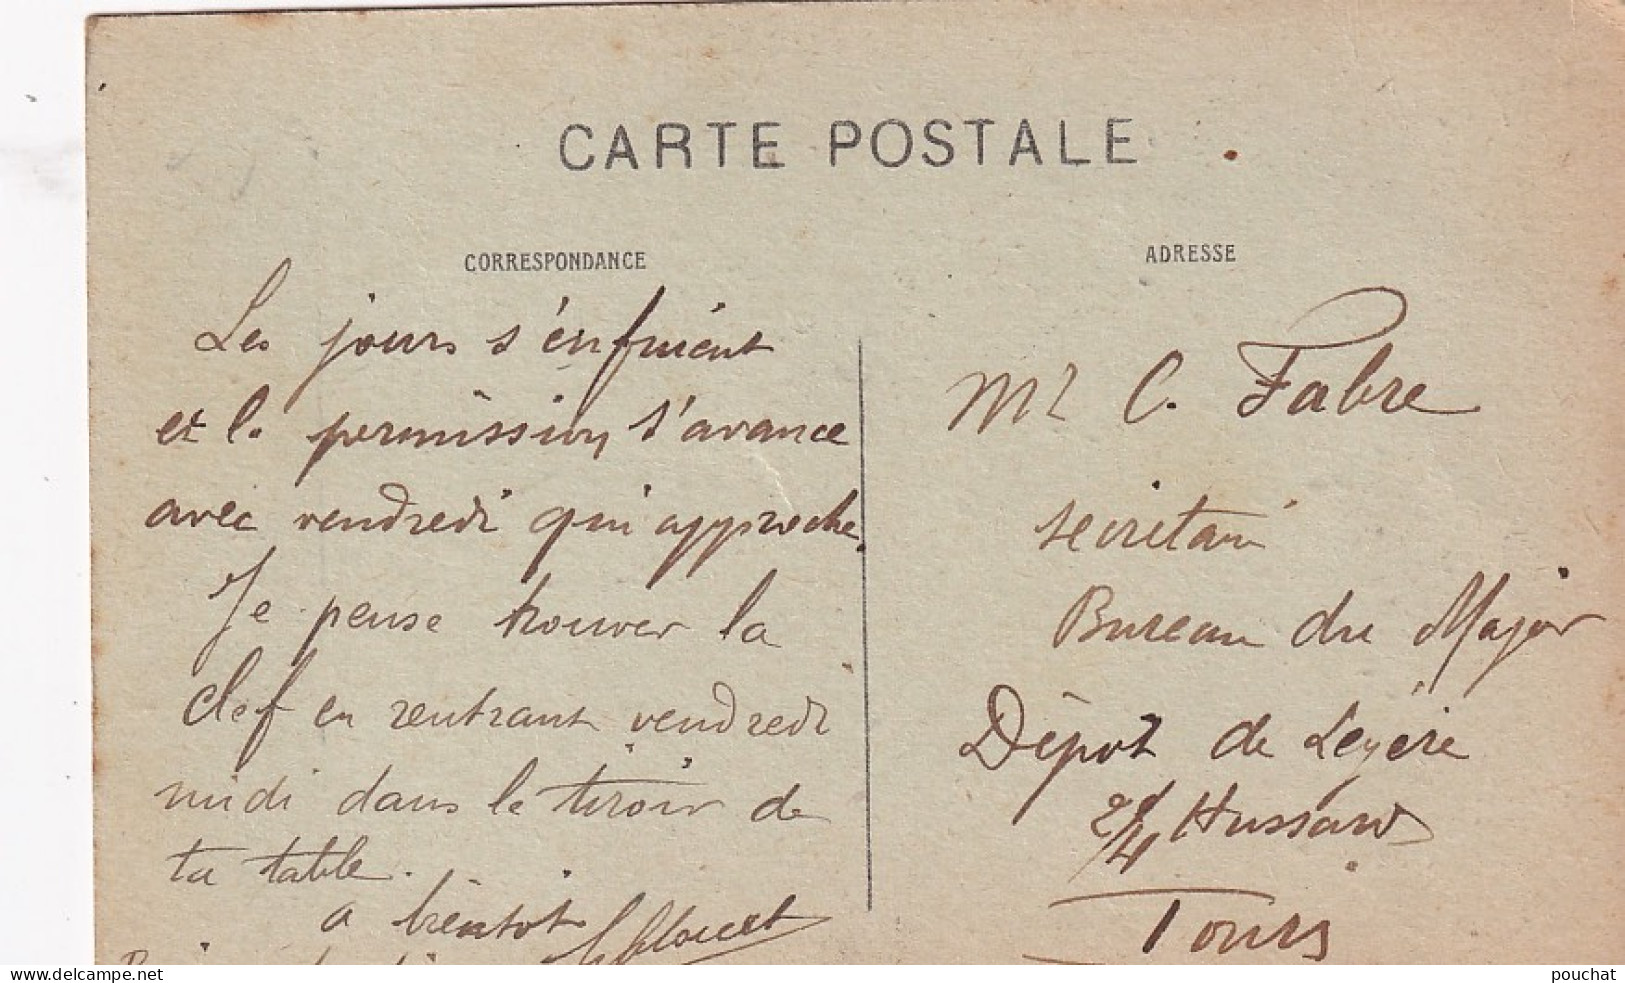 CARTE POSTALE
CORRESPONDANCE
Les jours s'enfuient
et la permission s'avance
avec vendredi qui approche.
Je pense trouver la
clef en rentrant vendredi
midi dans le tiroir de
ta table.
a bientôt
ADRESSE
Mr C. Fabre
secrétaire
Bureau du Major
Dépôt de Légère
2/4 Hussards
Tours
www.delcampe.net
pouchat